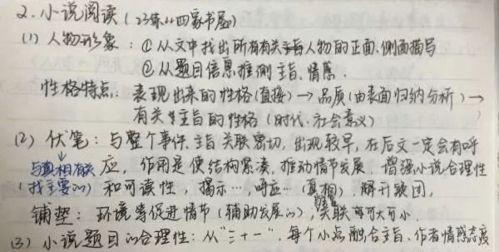 2. 小说阅读（23练11四寄书屋）
(1) 人物形象：①从文中找出所有有关于每人物的正面、侧面描写
②从题目信息推测主旨、情感.
性格特点：表现出来的性格(直接)→品质(由表面归纳分析)→
有关主旨的性格（时代、社会意义）
(2) 伏笔：与整个事件、主旨关联密切，出现较早，在后文一定会有呼
与真相有关 应，作用是使结构紧凑，推动情节发展，增强小说合理性
(找主要的) 和可读性，揭示…，呼应…（真相）解开谜团，
铺垫：环境等促进情节（辅助发展的），关联可大可小.
(3) 小说题目の合理性：从“三十一”，每个小点融合主旨，作者情感态度